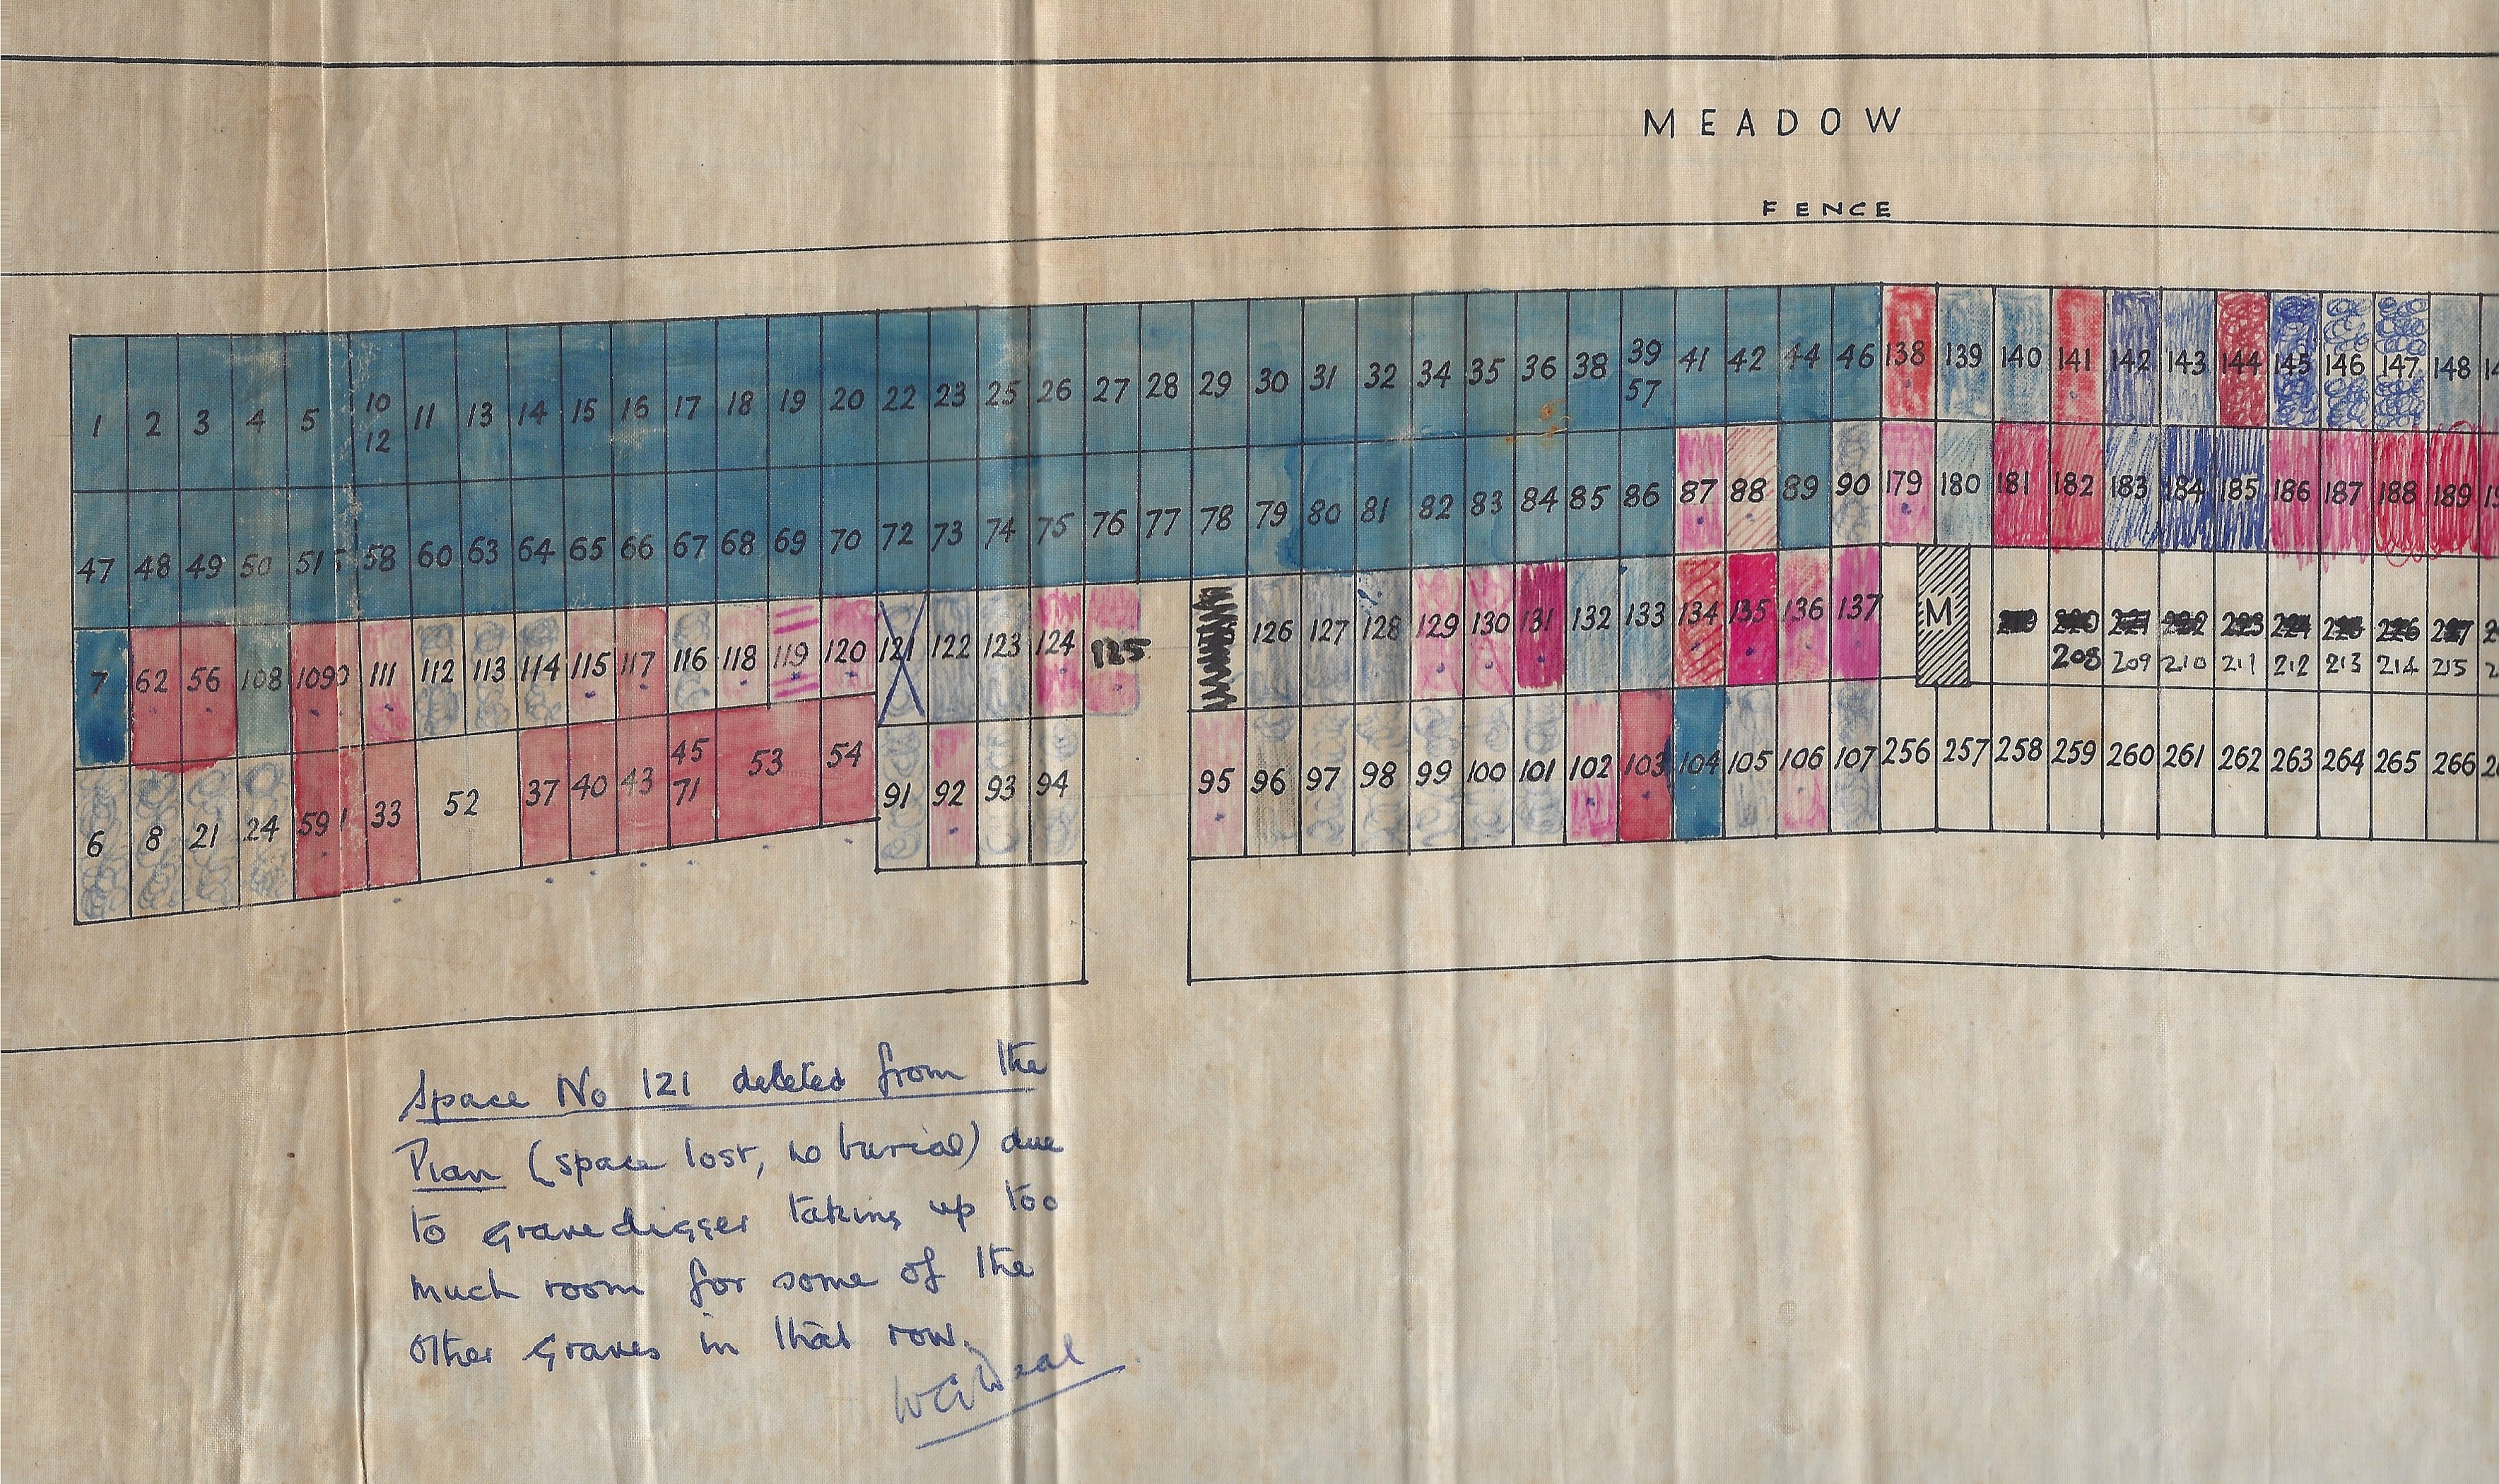 MEADOW
FENCE
1 2 3 4 5 10 11 13 14 15 16 17 18 19 20 22 23 25 26 27 28 29 30 31 32 34 35 36 38 39 41 42 44 46 138 139 140 141 142 143 144 145 146 147 148
12 57
47 48 49 50 51 58 60 63 64 65 66 67 68 69 70 72 73 74 75 76 77 78 79 80 81 82 83 84 85 86 87 88 89 90 179 180 181 182 183 184 185 186 187 188 189
7 62 56 108 109 111 112 113 114 115 117 116 118 119 120 121 122 123 124 125 126 127 128 129 130 131 132 133 134 135 136 137 M
208 209 210 211 212 213 214 215
6 8 21 24 59 33 52 37 40 43 45 53 54 91 92 93 94 95 96 97 98 99 100 101 102 103 104 105 106 107 256 257 258 259 260 261 262 263 264 265 266
71
Space No 121 deleted from the
Plan (space lost, no burial) due
to gravedigger taking up too
much room for some of the
other graves in that row.